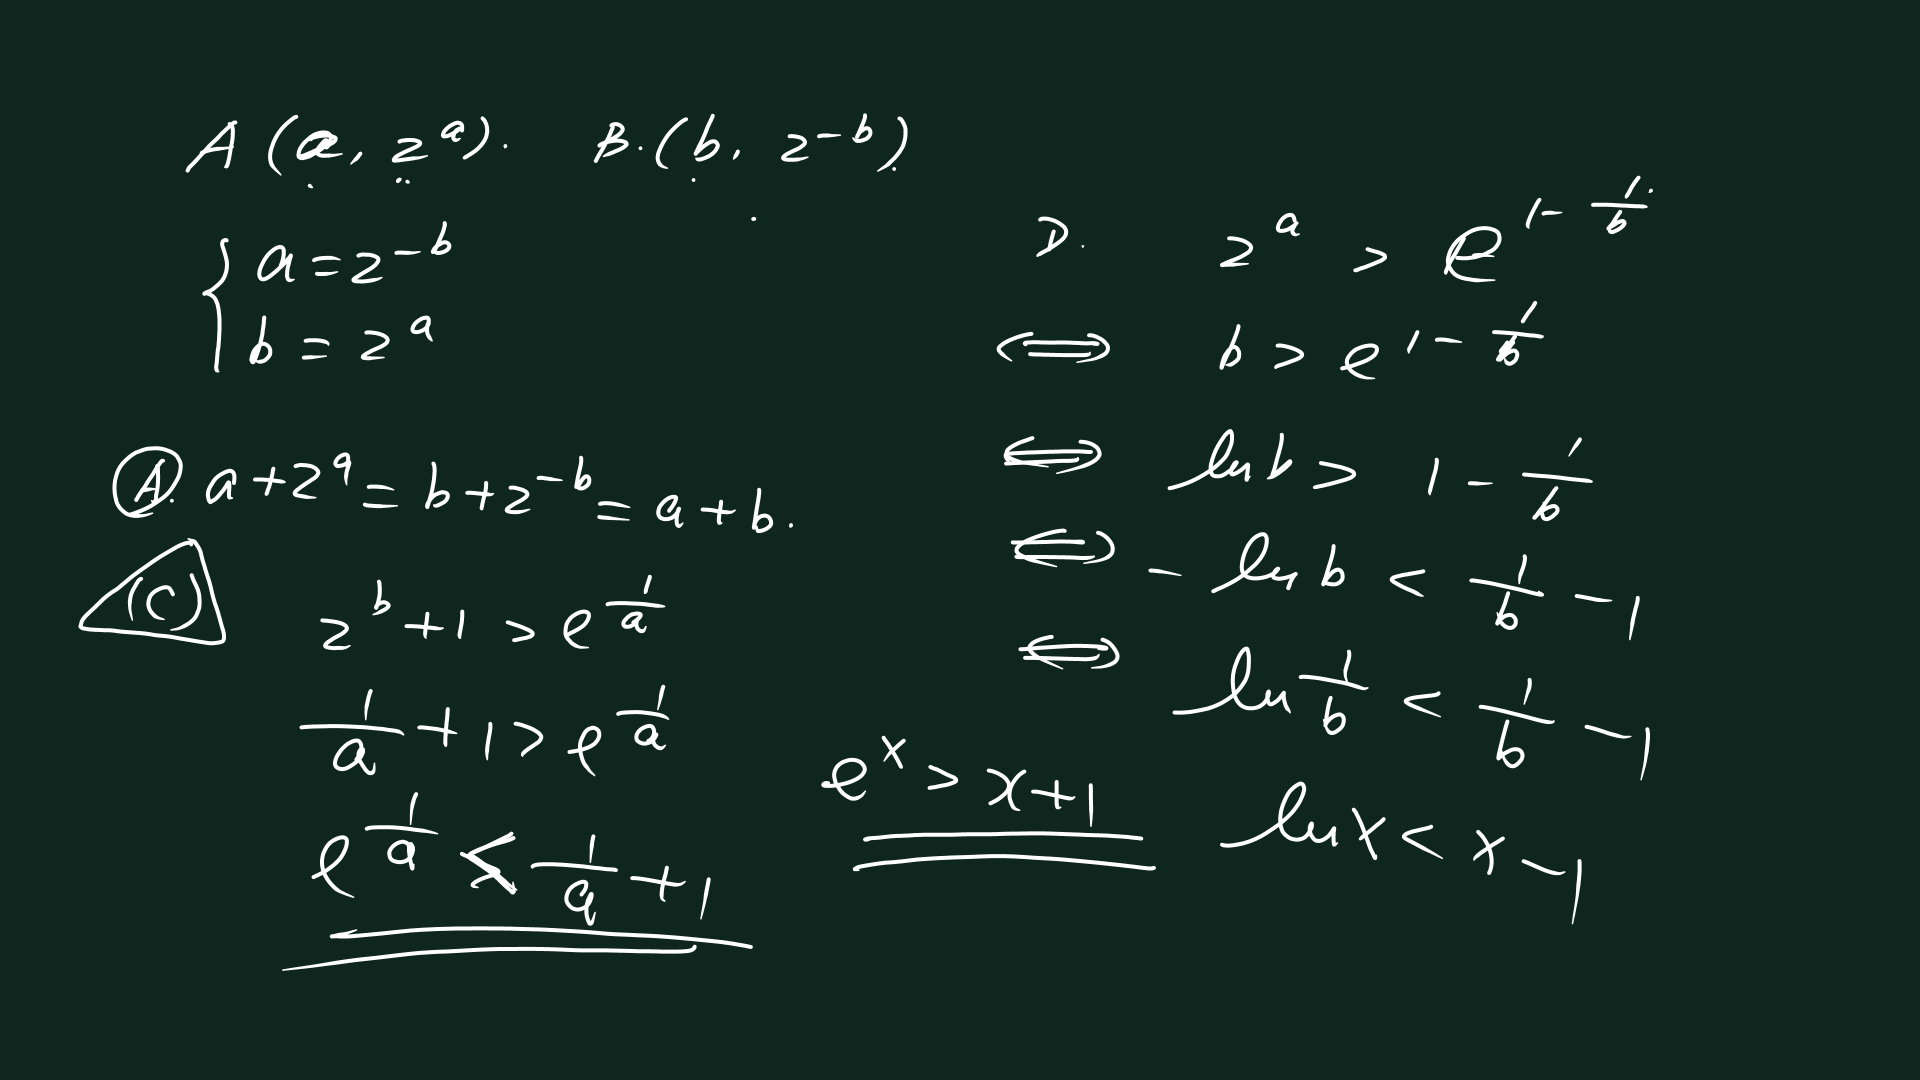 A (a, 2^a). B. (b, 2^{-b})
{ a = 2^{-b}
b = 2^a
A. a + 2^a = b + 2^{-b} = a + b.
(C) 2^b + 1 > e^{1/a}
1/a + 1 > e^{1/a}
e^{1/a} < 1/a + 1
e^x > x + 1
D. 2^a > e^{1 - 1/b}
⟺ b > e^{1 - 1/b}
⟺ ln b > 1 - 1/b
⟺ - ln b < 1/b - 1
⟺ ln 1/b < 1/b - 1
ln x < x - 1